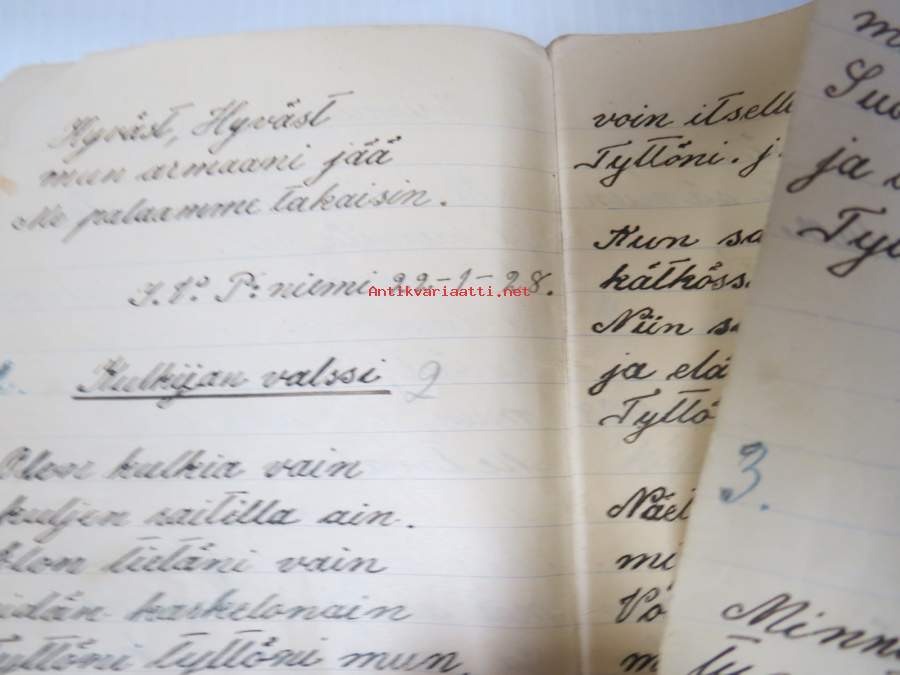 Hyväst, Hyväst
mun armaani jää
Me palaamme takaisin.
P:niemi 22-1-28.
Antikvariaatti.net
Kulkijan valssi 2
Olon kulkia vain
kuljen raitilla ain.
Olon tietäni vain
karkelonain
tyttöni mun
voin itsell
Tyttöni. j
Kun sa
kätköss
Niin s
ja elä
Tyttö
Näel
m
ja
Ty
3.
Minn